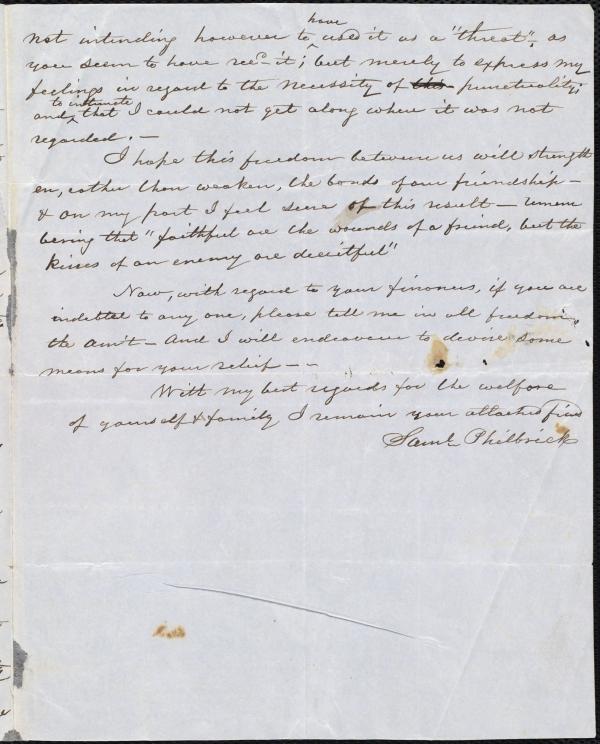 have
not intending however to used it as a "threat", as
you seem to have recd it; but merely to express my
feelings in regard to the necessity of this punctuality;
to intimate
and that I could not get along where it was not
regarded. —
I hope this freedom between us will strength
en, rather than weaken, the bonds of our friendship —
& on my part I feel sure of this result — remem
bering that "faithful are the wounds of a friend, but the
kisses of an enemy are deceitful"
Now, with regard to your finances, if you are
indebted to any one, please tell me in all freedom,
the am't — And I will endeavour to devise some
means for your relief — -
With my best regards for the welfare
of yourself & family I remain your attached frind
Saml. Philbrick